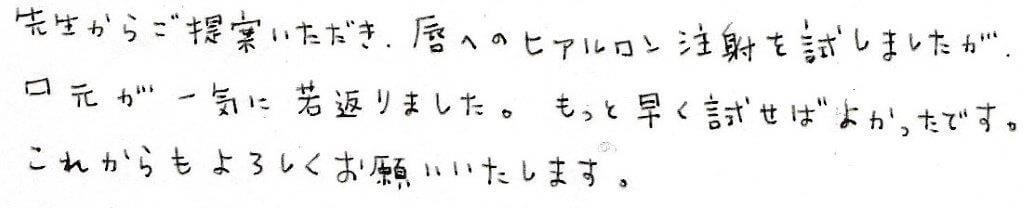 先生からご提案いただき、唇へのヒアルロン注射を試しましたが、
口元が一気に若返りました。もっと早く試せばよかったです。
これからもよろしくお願いいたします。